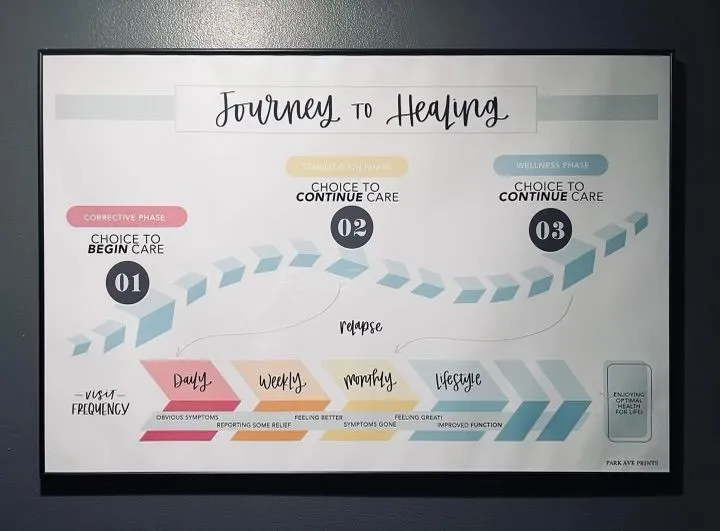 Journey to Healing
CORRECTIVE PHASE
CHOICE TO
BEGIN CARE
01
STABILIZATION PHASE
CHOICE TO
CONTINUE CARE
02
WELLNESS PHASE
CHOICE TO
CONTINUE CARE
03
relapse
visit
FREQUENCY
Daily
Weekly
Monthly
Lifestyle
OBVIOUS SYMPTOMS
REPORTING SOME RELIEF
FEELING BETTER
SYMPTOMS GONE
FEELING GREAT!
IMPROVED FUNCTION
ENJOYING
OPTIMAL
HEALTH
FOR LIFE!
PARK AVE PRINTS